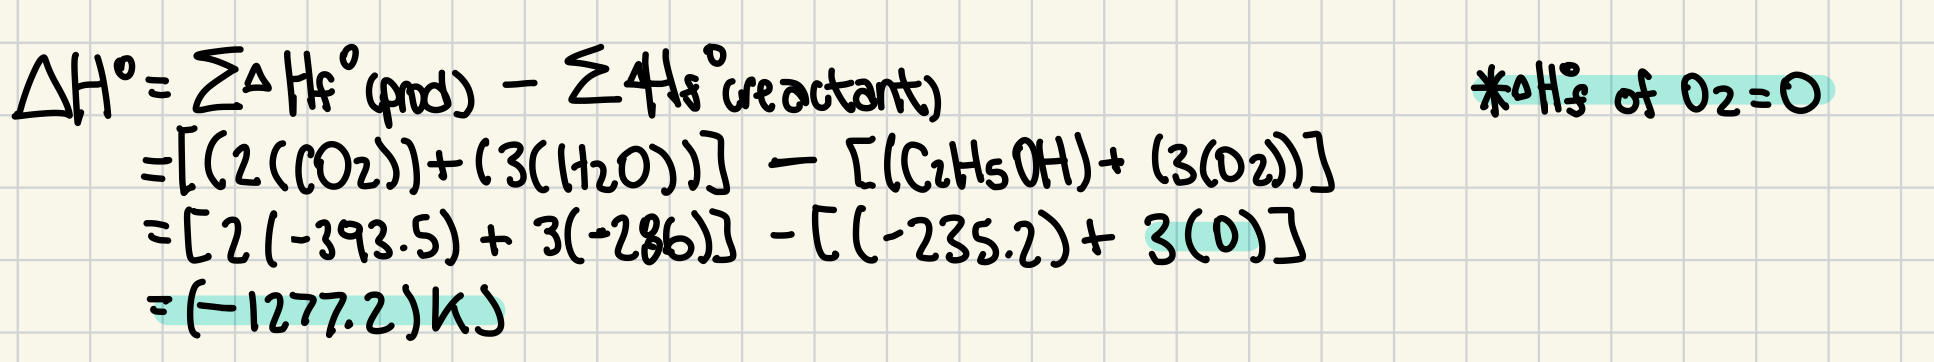 ΔH° = ΣΔHf°(prod) − ΣΔHf°(reactant)
*ΔHf° of O₂ = 0
= [(2(CO₂)) + (3(H₂O))] − [(C₂H₅OH) + (3(O₂))]
= [2(-393.5) + 3(-286)] − [(-235.2) + 3(0)]
= (-1277.2) KJ